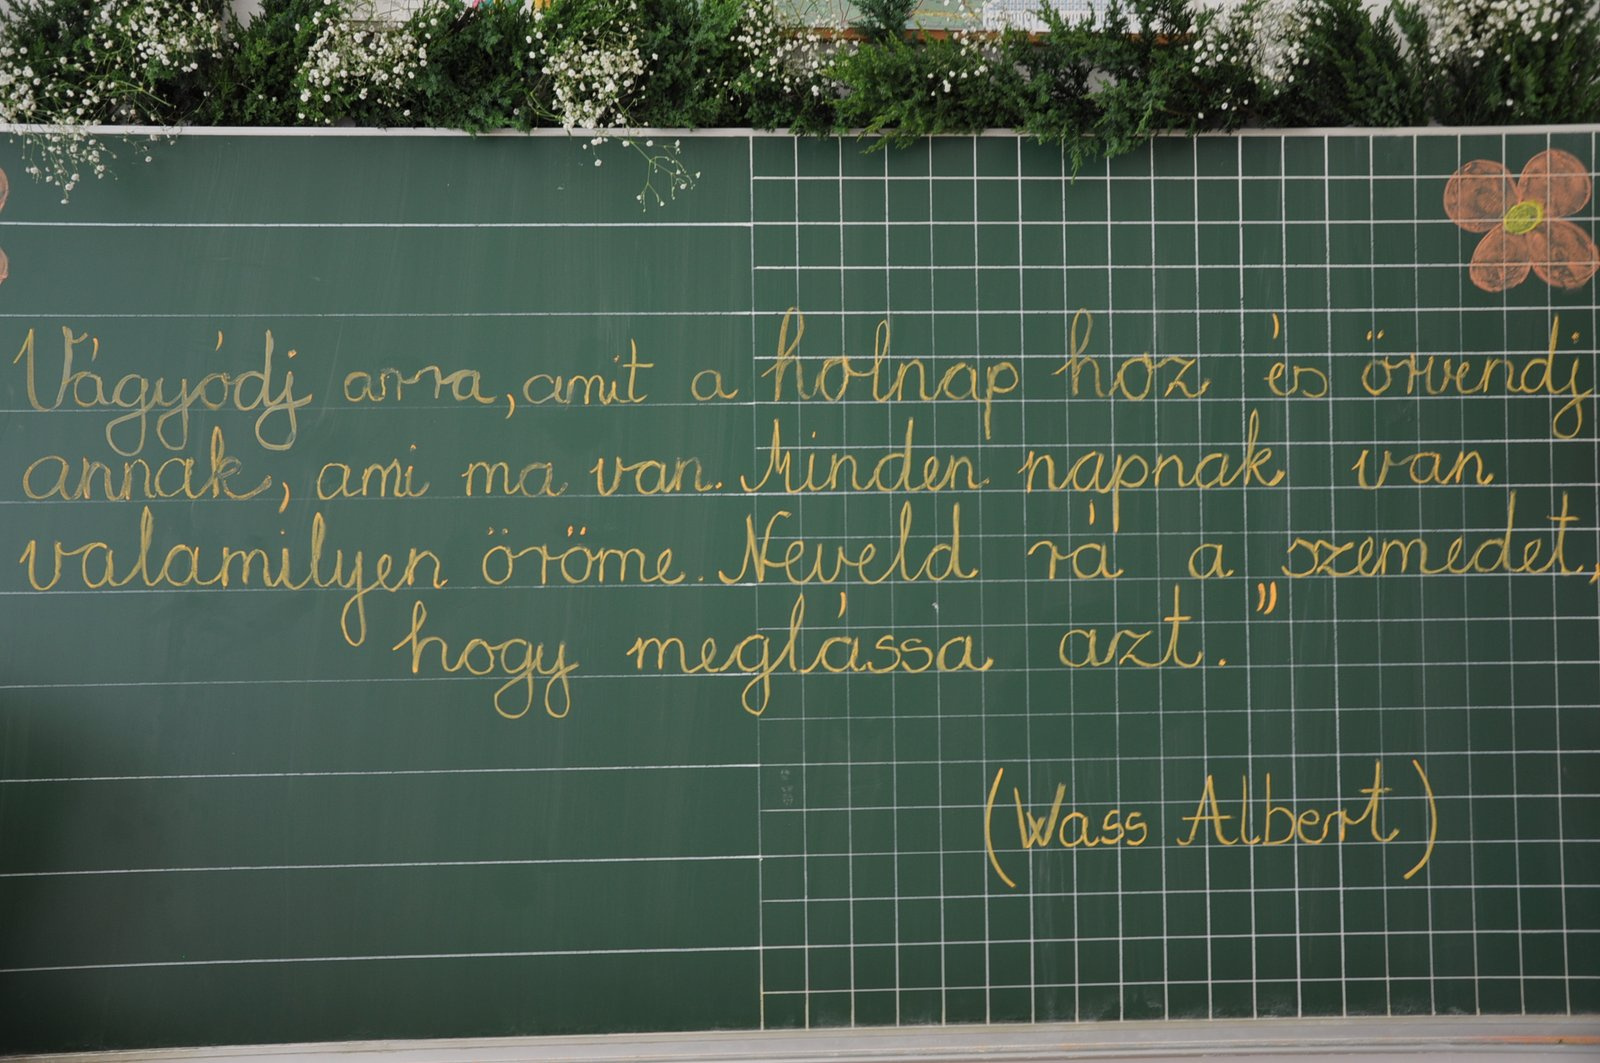 Vágyódj arra, amit a holnap hoz és örvendj
annak, ami ma van. Minden napnak van
valamilyen öröme. Neveld rá a szemedet,
hogy meglássa azt."
(Wass Albert)